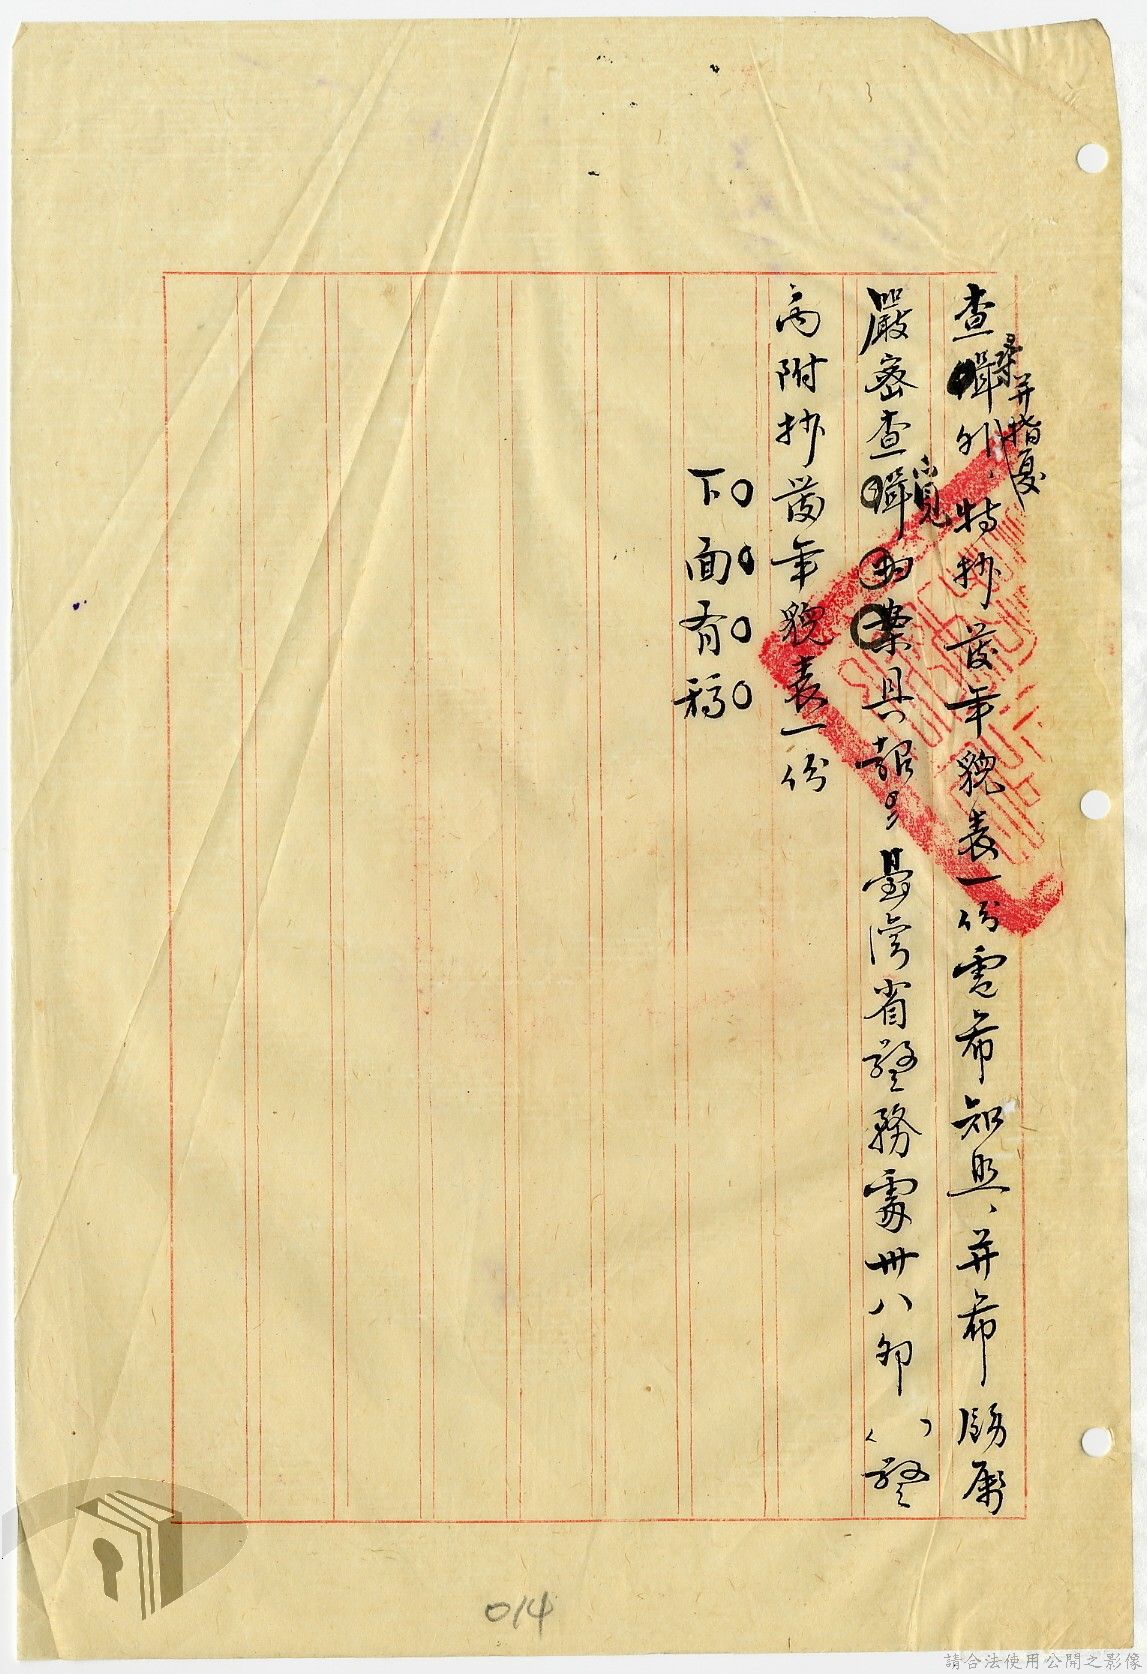 查緝外、特抄發年貌表一份電希知照、并希飭屬
尋案并指复
嚴密查緝 為案具報 臺灣省警務處卅八卯( )警
覓
丙附抄發年貌表一份
下面有稿
014
請合法使用公開之影像